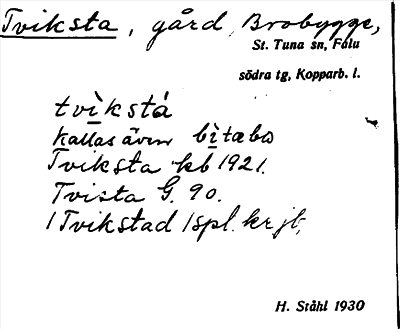 Tviksta, gård, Brobygge,
St. Tuna sn, Falu
södra tg, Kopparb. l.
tvìkstá
kallas även bìtæbo
Tviksta kb 1921.
Tvista G. 90.
/Tvikstad /spl. kr jb,
H. Ståhl 1930